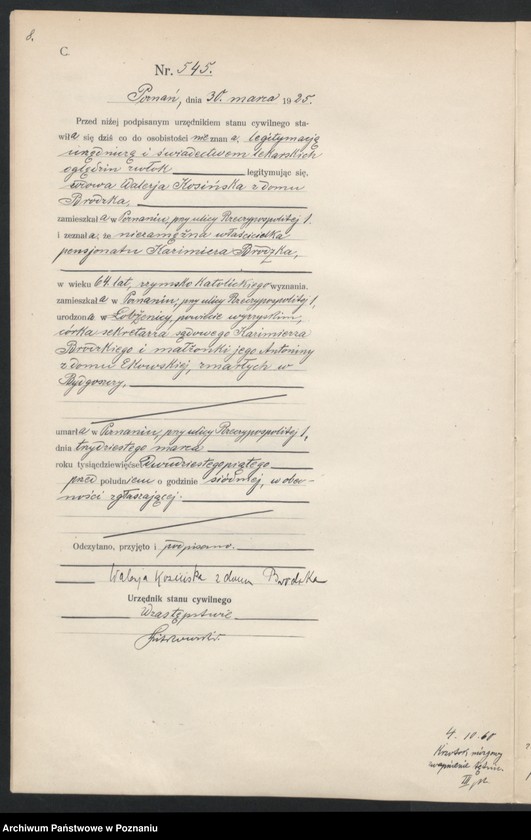 8.
C
Nr. 545.
Poznań, dnia 30. marca 1925.
Przed niżej podpisanym urzędnikiem stanu cywilnego sta-
wiła się dziś co do osobistości nie znana, legitymację
urzędniczą i świadectwem lekarskich
oględzin zwłok legitymując się,
wdowa Walerja Kosińska z domu
Brodzka,
zamieszkała w Poznaniu, przy ulicy Rzeczypospolitej 1.
i zeznała, że niezamężna właścicielka
pensjonatu Kazimiera Brodzka,
w wieku 64 lat, rzymsko katolickiego wyznania.
zamieszkała w Poznaniu, przy ulicy Rzeczypospolitej 1,
urodzona w Łobżenicy, powiecie wyrzyskim,
córka sekretarza sądowego Kazimierza
Brodzkiego i małżonki jego Antoniny
z domu zmarłych w
Bydgoszczy,
umarła w Poznaniu, przy ulicy Rzeczypospolitej 1,
dnia trzydziestego marca
roku tysiącdziewięćset dwudziestegopiątego
przed południem o godzinie siódmej, w obec-
ności zgłaszającej.
Odczytano, przyjęto i podpisano.
Walerja Kosińska z domu Brodzka
Urzędnik stanu cywilnego
W zastępstwie
4. 10. 60
Archiwum Państwowe w Poznaniu